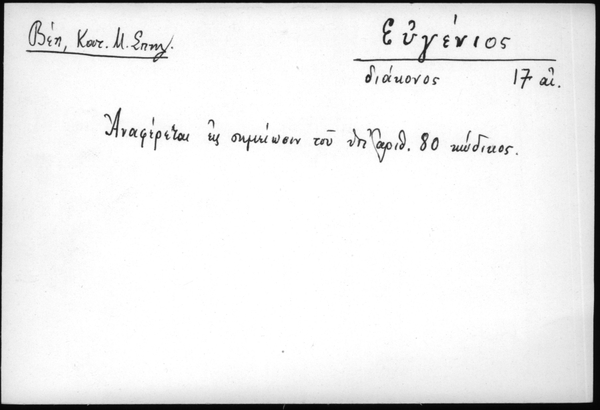 Βέη, Κατ. Μ. Σπηλ.
Εὐγένιος
διάκονος 17 αἰ.
Ἀναφέρεται εἰς σημείωσιν τοῦ ὑπ' ἀριθ. 80 κώδικος.